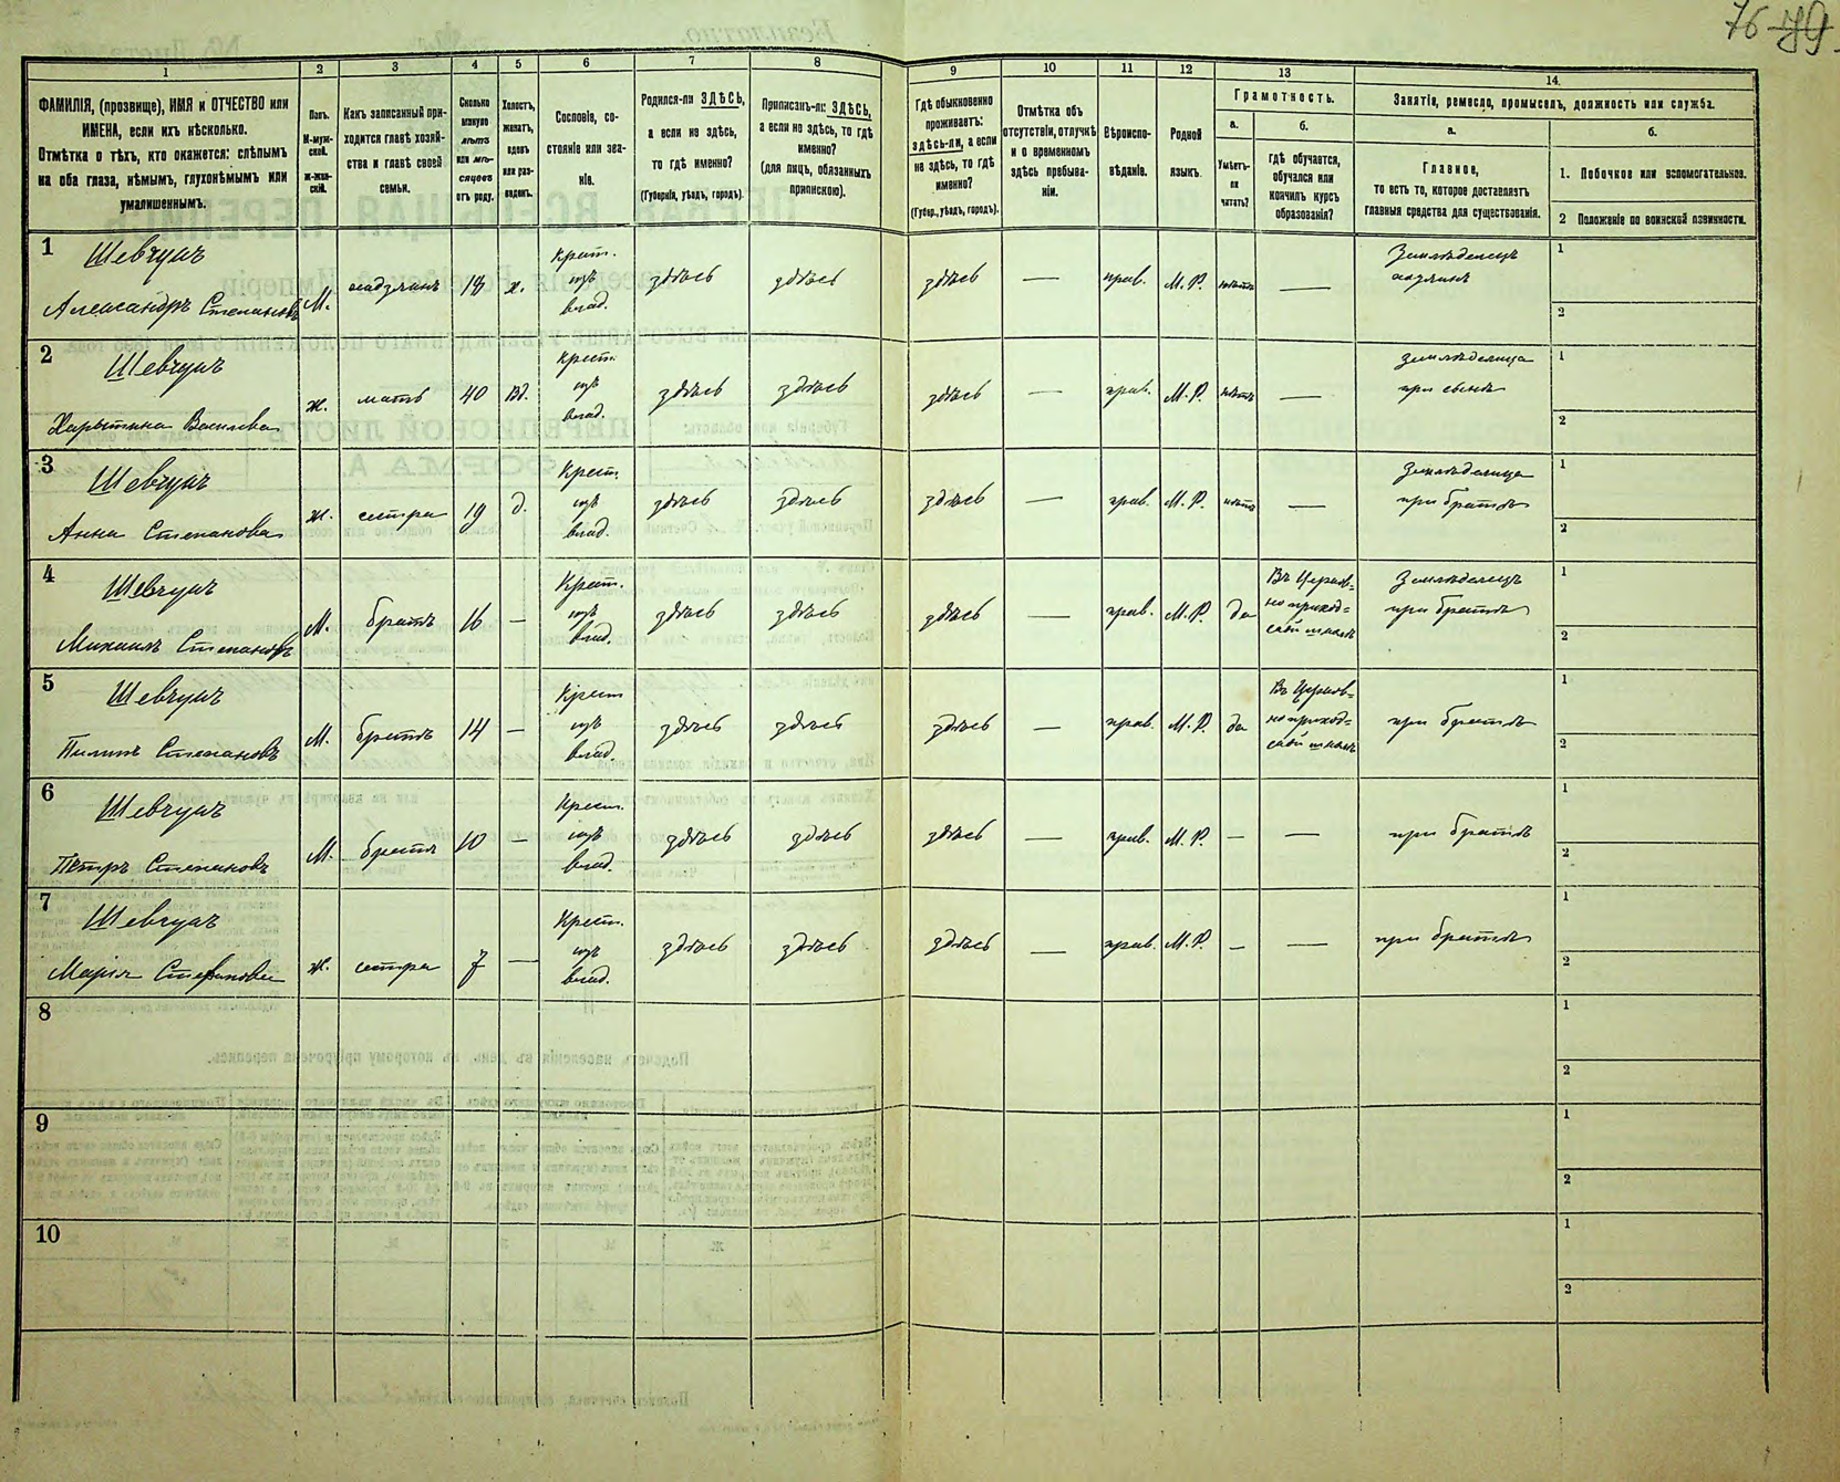 76 79
1
2
3
4
5
6
7
8
9
10
11
12
13
14.
ФАМИЛІЯ, (прозвище), ИМЯ и ОТЧЕСТВО или
ИМЕНА, если ихъ нѣсколько.
Отмѣтка о тѣхъ, кто окажется: слѣпымъ
на оба глаза, нѣмымъ, глухонѣмымъ или
умалишеннымъ.
Полъ.
М-муж-
ской.
Ж-жен-
скій.
Какъ записанный при-
ходится главѣ хозяй-
ства и главѣ своей
семьи.
Сколько
минуло
лѣтъ
или мѣ-
сяцевъ
отъ роду.
Холостъ,
женатъ,
вдовъ
или раз-
веденъ.
Сословіе, со-
стояніе или зва-
ніе.
Родился-ли ЗДѢСЬ,
а если не здѣсь,
то гдѣ именно?
(Губернія, уѣздъ, городъ).
Приписанъ-ли ЗДѢСЬ,
а если не здѣсь, то гдѣ
именно?
(для лицъ, обязанныхъ
припискою).
Гдѣ обыкновенно
проживаетъ:
здѣсь-ли, а если
не здѣсь, то гдѣ
именно?
(Губер., уѣздъ, городъ).
Отмѣтка объ
отсутствіи, отлучкѣ
и о временномъ
здѣсь пребыва-
ніи.
Вѣроиспо-
вѣданіе.
Родной
языкъ.
Грамотность.
а.
Умѣетъ-
ли
читать?
б.
гдѣ обучается,
обучался или
кончилъ курсъ
образованія?
Занятіе, ремесло, промыселъ, должность или служба.
а.
Главное,
то есть то, которое доставляетъ
главныя средства для существованія.
б.
1. Побочное или вспомогательное.
2 Положеніе по воинской повинности.
1
Шевчукъ
Александръ Степановъ
М. хозяинъ 18 х.
Крест.
изъ
влад.
здѣсь здѣсь здѣсь — прав. М. Р. нѣтъ —
Земледелецъ
хозяинъ
1
2
2
Шевчукъ
Харытина Василева
ж. мать 40 вд.
Крест.
изъ
влад.
здѣсь здѣсь здѣсь — прав. М. Р. нѣтъ —
земледелица
при сынѣ
1
2
3
Шевчукъ
Анна Степанова
ж. сестра 19 д.
Крест.
изъ
влад.
здѣсь здѣсь здѣсь — прав. М. Р. нѣтъ —
Земледелица
при братѣ
1
2
4
Шевчукъ
Михаилъ Степановъ
М. братъ 16 —
Крест.
изъ
влад.
здѣсь здѣсь здѣсь — прав. М. Р. да
Въ Церков-
но приход-
ской школѣ
Земледелецъ
при братѣ
1
2
5
Шевчукъ
Пилипъ Степановъ
М. братъ 14 —
Крест
изъ
влад.
здѣсь здѣсь здѣсь — прав. М. Р. да
Въ Церков-
но приход-
ской школѣ
при братѣ
1
2
6
Шевчукъ
Пётръ Степановъ
М. братъ 10 —
Крест.
изъ
влад.
здѣсь здѣсь здѣсь — прав. М. Р. — —
при братѣ
1
2
7
Шевчукъ
Марія Степанова
ж. сестра 7 —
Крест.
изъ
влад.
здѣсь здѣсь здѣсь — прав. М. Р. — —
при братѣ
1
2
8
1
2
9
1
2
10
1
2